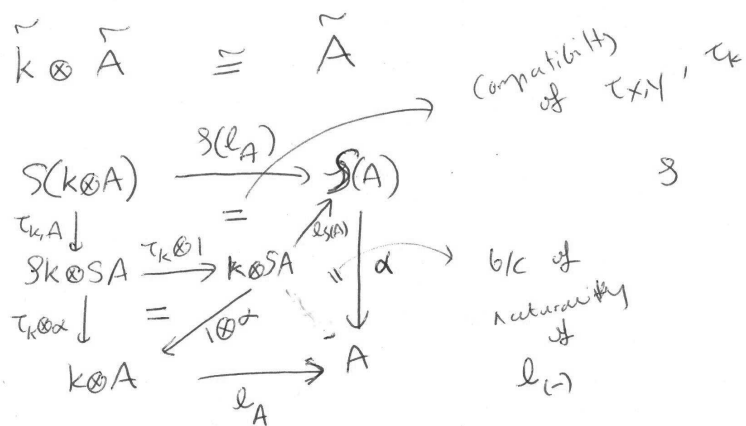 k̃ ⊗ Ã ≅ Ã
Compatibility
of τ_{X,Y}, τ_k
S(l_A)
S(k⊗A) → S(A)
S
τ_{k,A} ↓ =
l_{S(A)}
Sk⊗SA τ_k⊗1 → k⊗SA = α b/c of
naturality
of
l_{(-)}
τ_k⊗α ↓ = 1⊗α
k⊗A → A
l_A